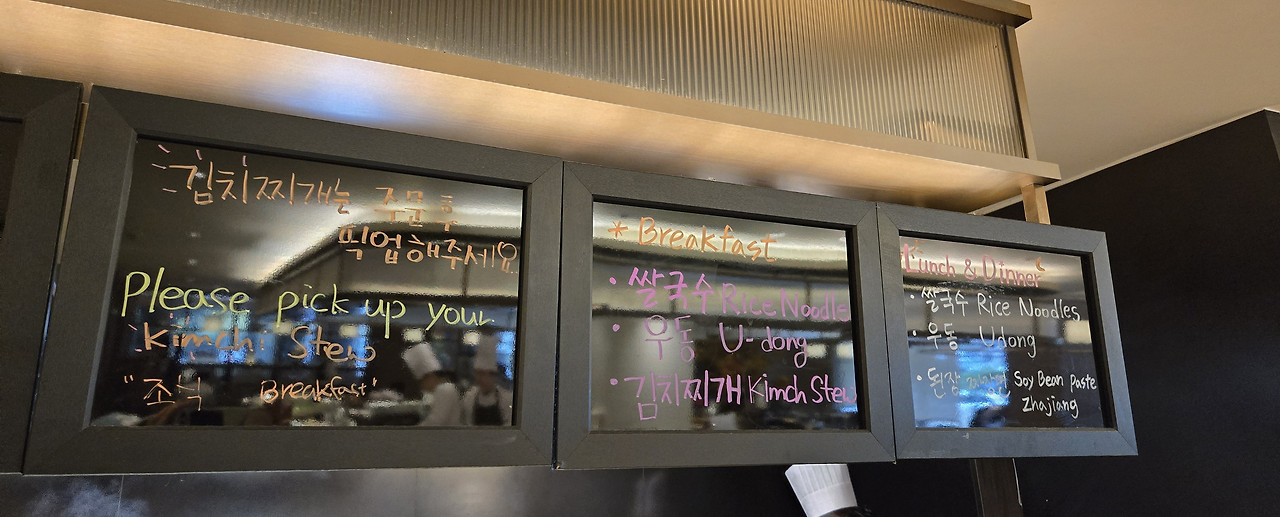 김치찌개는 주문 후
픽업해주세요
Please pick up your
Kimchi Stew
"조식 Breakfast"
* Breakfast
• 쌀국수 Rice Noodle
• 우동 U-dong
• 김치찌개 Kimch Stew
Lunch & Dinner
• 쌀국수 Rice Noodles
• 우동 Udong
• 된장 짜장면 Soy Bean Paste
Zhajiang